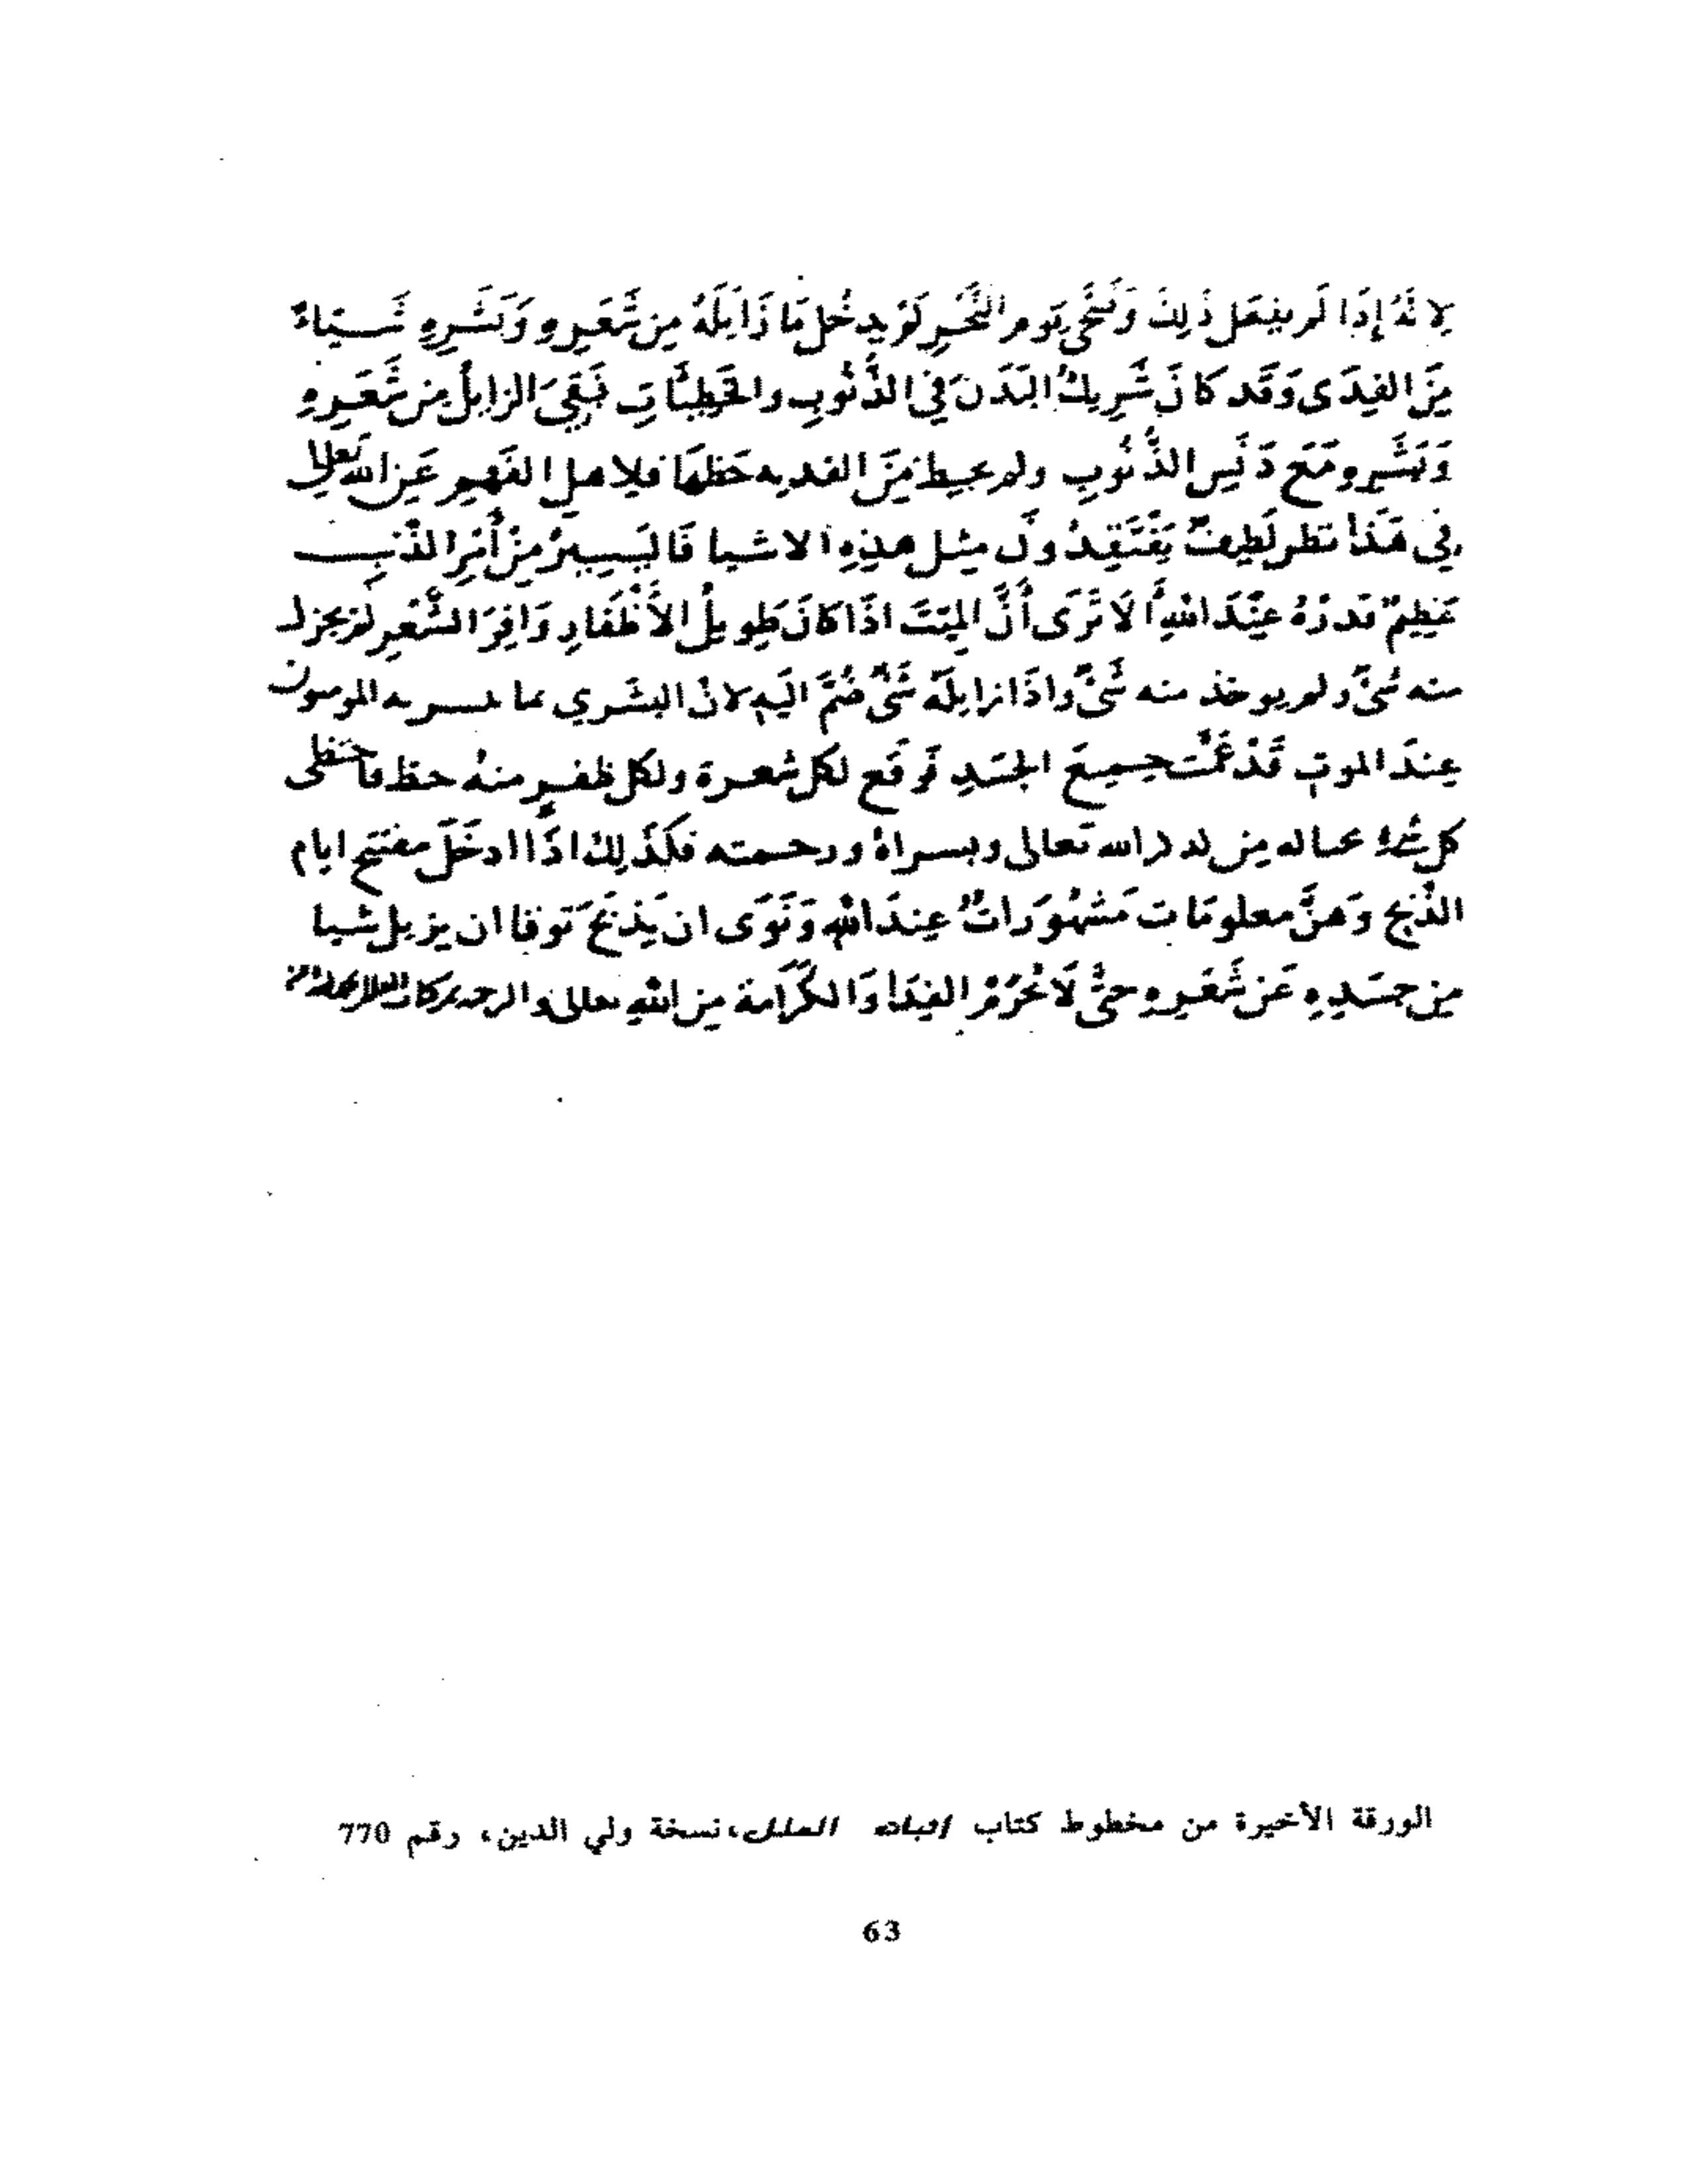 لِانَّهُ إِذَا لَم يفعَل ذَلِكَ وَضَحَّى يَوم النَّحْرِ لَمْ يدخُل مَا زَايَلَهُ مِن شَّعَرِهِ وَبَشَرِهِ شَيئاً
مِنَ الفِدَى وَقَد كَانَ شَرِيكُ البَدَنَ فِي الذُّنُوبِ والخَطِيئَاتِ فَبَقِيَ الزايلُ مِن شَّعَرِهِ
وَبَشَرِهِ مَعَ دَنَسِ الذُّنُوبِ ولم يحط مِنَ الفديه حَظهَا فلاهلِ الفَهمِ عَنِ الله تعالى
فِي هَذَا نظر لَطِيفٌ يَفْتَقِدُونَ مِثل هذِهِ الاشيا فَاليَسِيرُ مِنْ أَثَرِ الذَّنبِ
عَظِيمٌ قَدرُهُ عِنْدَ اللهِ أَلَا تَرَى أَنَّ المَيتَ اذَا كَانَ طَوِيلُ الأَظْفَارِ وَافِرَ الشَّعْرِ لَمْ يجز
منه شَيٌ ولم يوخذ منه شَيٌ واذَا زايلَهُ شَيٌ ضُمَّ اليَهِ لانْ البشري
عِندَ الموتِ قَدْ عَمَّت جميعَ الجَسَدِ فَوقَع لكل شعرة ولكل ظفرٍ منهُ حظ فاحتظى
كل الله تعالى ورحمته فكَذَلِكَ اذَا ادخَلَ مفتتح ايام
الذَّبحِ وَهنَّ معلومَات مَشهُورَاتٌ عِندَ اللهِ وَنَوَى ان يَذبَحَ توقا ان يزيل شيا
مِن جَسَدِهِ عَن شَعَرِهِ حتَّى لَا تُحْرَمُ الفِدَا وَالكَرَامَة مِن اللهِ
الورقة الأخيرة من مخطوط كتاب إثبات العلل، نسخة ولي الدين، رقم 770
63